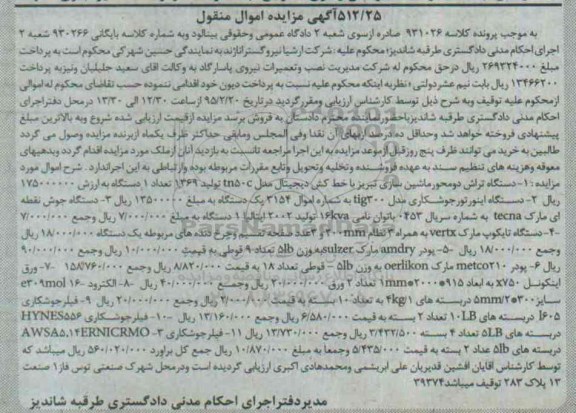 ۵۱۲/۲۵آگهی مزایده اموال منقول
به موجب پرونده کلاسه ۹۳۱۰۲۶ صادره ازسوی شعبه ۲ دادگاه عمومی وحقوقی بینالود وبه شماره کلاسه بایگانی ۹۳۰۲۶۶ شعبه ۲
اجرای احکام مدنی دادگستری طرقبه شاندیز؛ محکوم علیه : شرکت ارشیا نیروگسترآژند به نمایندگی حسین شهرکی محکوم است به پرداخت
مبلغ ۲۶۹۳۲۴۰۰۰ ریال درحق محکوم له شرکت مدیریت نصب وتعمیرات نیروی پاسارگاد به وکالت آقای سعید جلیلیان ونیزبه پرداخت
۱۳۴۶۶۲۰۰ ریال بابت نیم عشردولتی ؛ نظربه اینکه محکوم علیه نسبت به پرداخت دیون خود اقدامی ننموده حسب تقاضای محکوم له اموالی
ازمحکوم علیه توقیف وبه شرح ذیل توسط کارشناس ارزیابی ومقررگردید درتاریخ ۹۵/۲/۲۰ ازساعت ۱۲/۳۰ الی ۱۳/۳۰ درمحل دفتراجرای
احکام مدنی دادگستری طرقبه شاندیزباحضورنماینده محترم دادستان به فروش برسد مزایده ازقیمت ارزیابی شده شروع وبه بالاترین مبلغ
پیشنهادی فروخته خواهد شد وحداقل ده درصد ازبهای آن نقدا وفی المجلس ومابقی حداکثر ظرف یکماه ازبرنده مزایده وصول می گردد
طالبین به خرید می توانند ظرف پنج روزقبل ازموعد مزایده به این اجرا مراجعه تانسبت به بازدید آنان ازملک مورد مزایده اقدام گردد وبدهیهای
معوقه وهزینه های تنظیم سند به عهده فروشنده وتخلیه وتحویل وتابع مقررات مربوطه بوده وارتباطی به این اجراندارد . شرح اموال مورد
مزایده : ۱- دستگاه تراش دومحورماشین سازی تبریز با خط کش دیجیتال مدل tn۵۰c تولید ۱۳۶۹ تعداد ۱ دستگاه به ارزش ۱۷۵۰۰۰۰۰۰
ریال ۲- دستگاه اینورتورجوشکاری مدل tig۳۰۰ به شماره اموال ۲۱۵۴ یک دستگاه به مبلغ ۱۳۵۰۰۰۰۰ ریال ۳- دستگاه جوش نقطه
ای مارک tecna به شماره سریال ۰۴۵۳ باتوان نامی ۱۶kva تولید ۲۰۰۲ ایتالیا ۱ دستگاه به مبلغ ۷/۰۰۰/۰۰۰ ریال وجمع ۷/۰۰۰/۰۰۰
۴- دستگاه تایکوپ مارک vertx به همراه
ریال وجمع ۱۸/۰۰۰/۰۰۰ ریال ۵- پودر amdry مارک sulzer به وزن ۵lb تعداد ۹ قوطی به قیمت ۱۰/۰۰۰/۰۰۰ ریال وجمع ۹۰/۰۰۰/۰۰۰
ریال ۶- پودر metco۲۱۰ مارک oerlikon به وزن ۵lb - قوطی تعداد ۱۸ به قیمت ۸/۸۲۰/۰۰۰ ریال وجمع ۱۵۸/۷۶۰/۰۰۰ ۷- ورق
اینکونل x۷۵۰ به ابعاد ۹۱۵*۲۰۰۰*۱mm تعداد ۲ ورق ۲۰/۰۰۰/۰۰۰ ریال وجمع ۴۰/۰۰۰/۰۰۰ ریال ۸- الکترود e۳۰۹mol ۱۶-
سایز ۳۰۰*۵mm/۲ دربسته های ۴kg/۱ به تعداد ۱۰ بسته به قیمت ۲/۰۰۰/۰۰۰ ریال وجمع ۲۰/۰۰۰/۰۰۰ ریال ۹- فیلرجوشکاری
l۶۰۵ دربسته های ۱۰LB تعداد ۲ بسته به قیمت ۶/۵۸۰/۰۰۰ ریال وجمع ۱۳/۱۶۰/۰۰۰ ریال ۱۰- فیلرجوشکاری HYNES۵۵۶
دربسته های ۵LB تعداد ۴ بسته ۳/۴۳۲/۵۰۰ ریال وجمع ۱۳/۷۳۰/۰۰۰ ریال ۱۱- فیلرجوشکاری AWSA۵,۱۴ERNICRMO ۳-
دربسته های ۵lb عدد ۲ بسته به قیمت ۵/۴۳۵/۰۰۰ وجمعا به مبلغ ۱۰/۸۷۰/۰۰۰ ریال جمع کل براورد ۵۶۰/۰۲۰/۰۰۰ ریال میباشد که
توسط کارشناس آقایان افشین قدیریان علی ابریشمی ومحمدهادی اکبری ارزیابی گردیده است ودرمحل شهرک صنعتی توس فاز۱ صنعت
۱۳ پلاک ۲۸۳ توقیف میباشد ۳۹۳۷۴
مدیردفتراجرای احکام مدنی دادگستری طرقبه شاندیز